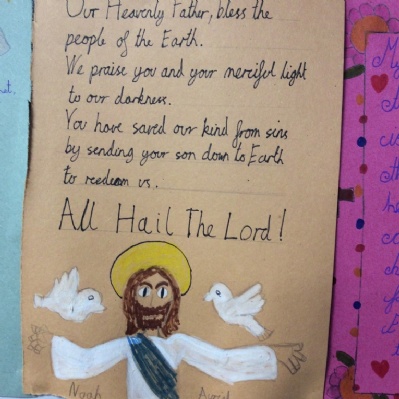 Our Heavenly Father, bless the
people of the Earth.
We praise you and your merciful light
to our darkness.
You have saved our kind from sins
by sending your son down to Earth
to reedeam us.
All Hail The Lord!
Noah